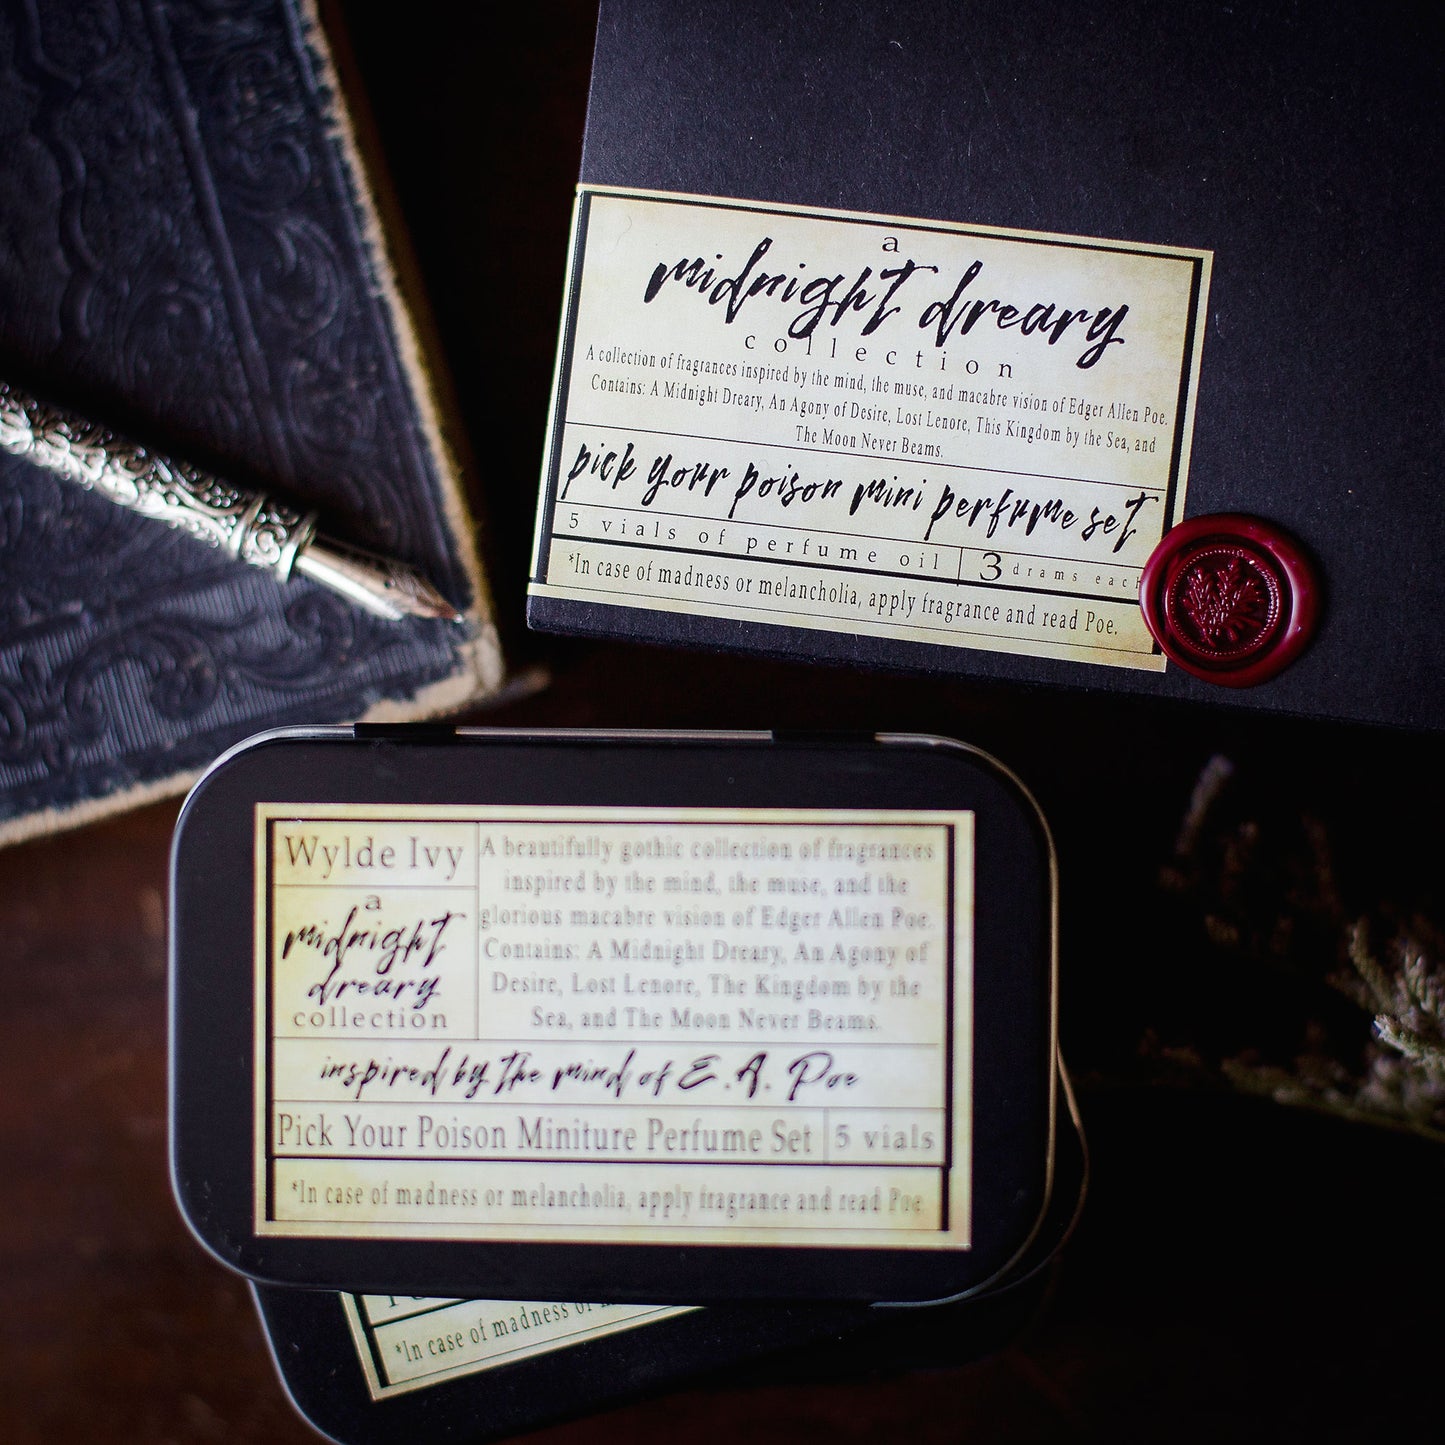 a
midnight dreary
collection
A collection of fragrances inspired by the mind, the muse, and macabre vision of Edger Allen Poe.
Contains: A Midnight Dreary, An Agony of Desire, Lost Lenore, This Kingdom by the Sea, and
The Moon Never Beams.
pick your poison mini perfume set
5 vials of perfume oil 3 drams each
*In case of madness or melancholia, apply fragrance and read Poe.
Wylde Ivy
a
midnight
dreary
collection
A beautifully gothic collection of fragrances
inspired by the mind, the muse, and the
glorious macabre vision of Edger Allen Poe.
Contains: A Midnight Dreary, An Agony of
Desire, Lost Lenore, The Kingdom by the
Sea, and The Moon Never Beams.
inspired by the mind of E.A. Poe
Pick Your Poison Miniture Perfume Set 5 vials
*In case of madness or melancholia, apply fragrance and read Poe
*In case of madness or